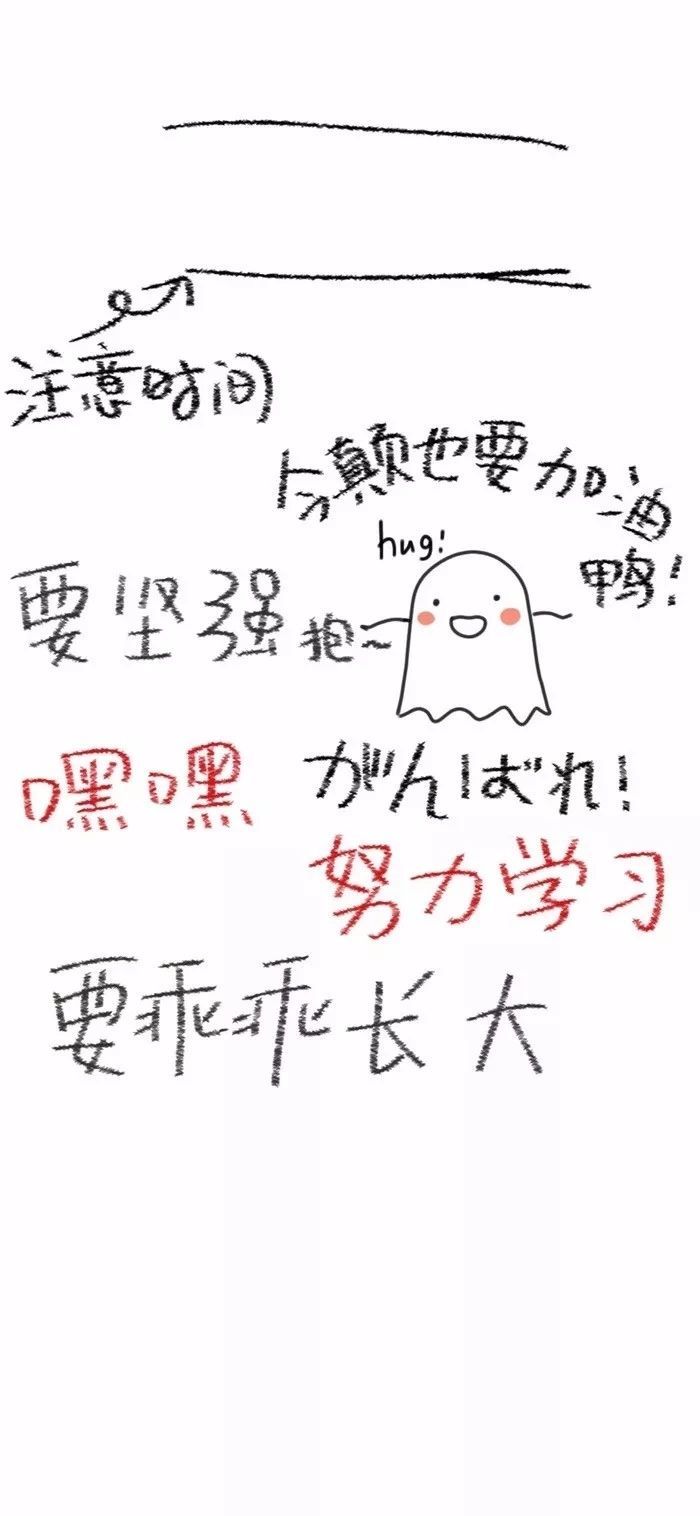 注意时间
今颠也要加油
鸭！
hug!
要坚强
抱~
嘿嘿
がんばれ！
努力学习
要乖乖长大